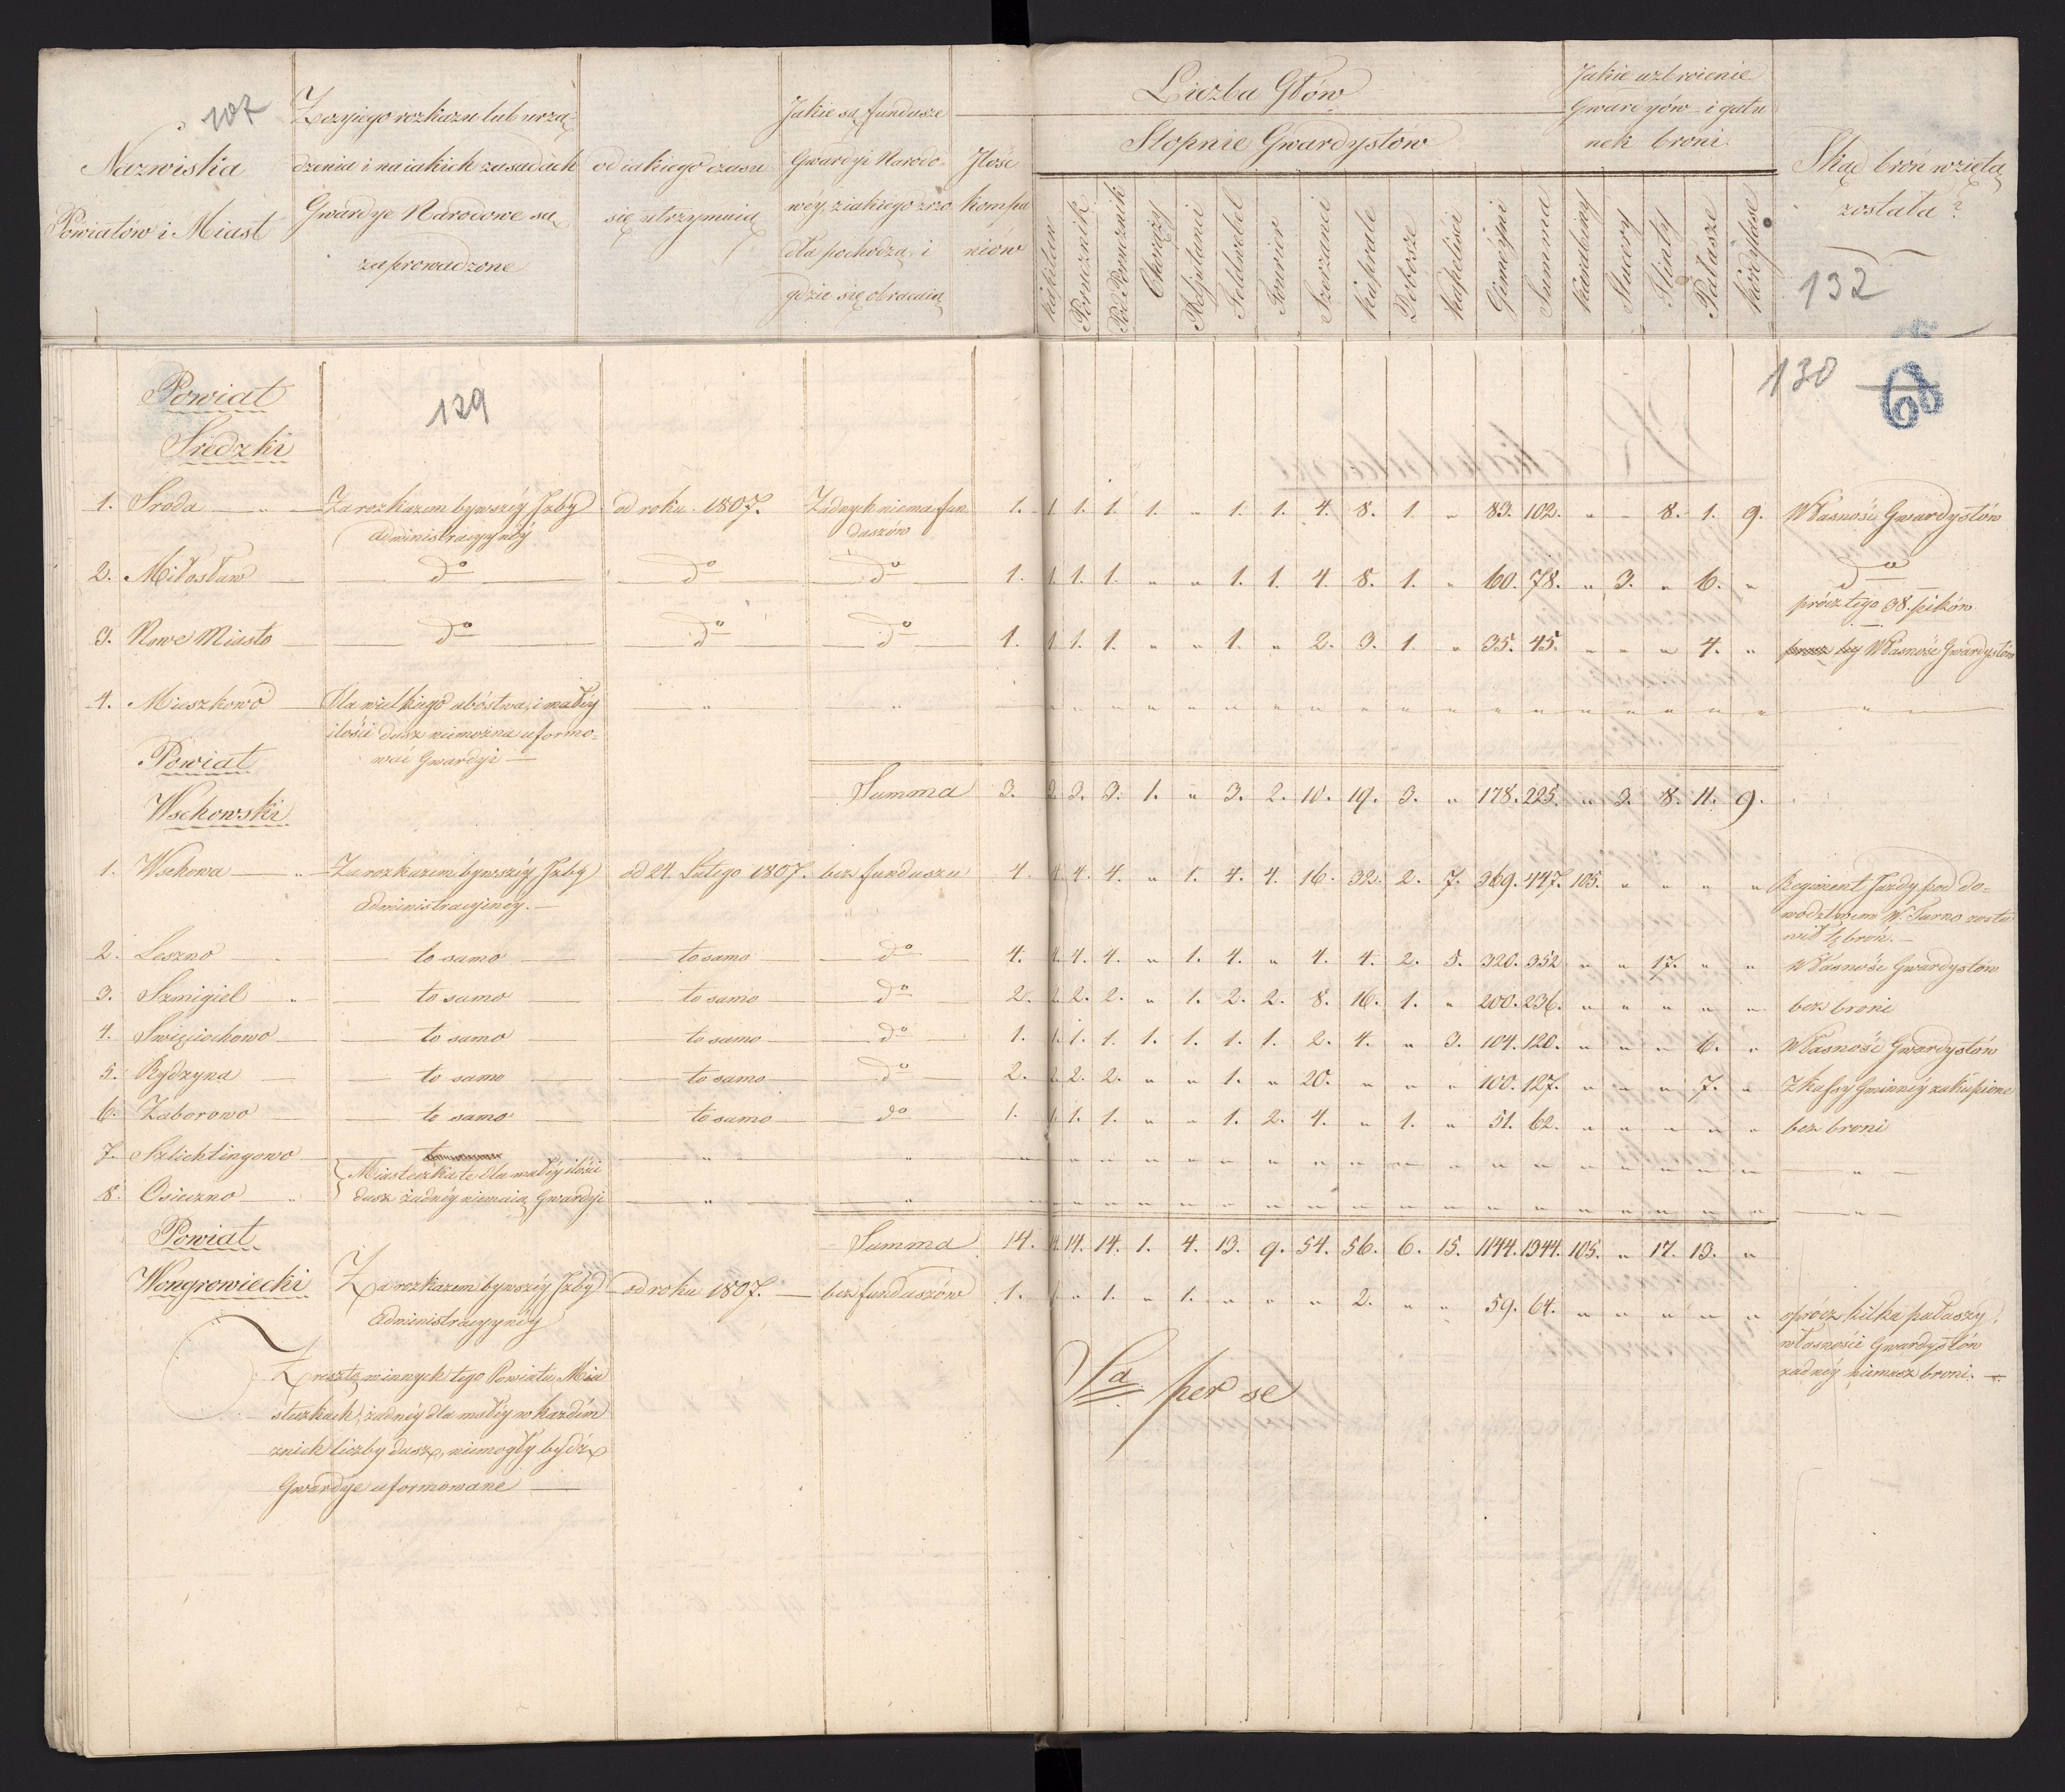 107
Nazwiska
Powiatów i Miast
Z czyiego rozkazu lub urzą-
dzenia i na iakich zasadach
Gwardye Narodowe są
zaprowadzone
od iakiego czasu
się utrzymuią
Jakie są fundusze
Gwardyi Narodo-
wéy, z iakiego zrzo
dła pochodzą, i
gdzie się obracaią
Jlość
kompa
niów
Liczba Głów
Stopnie Gwardystów
Kapitan
Porucznik
Pod Porucznik
Chorąży
Adjutanci
Feldwebel
Fourier
Szerzanci
Kaprale
Dobosze
Kapeliści
Gimeyni
Summa
Jakie uzbroienie
Gwardyów i gatu
nek broni
Karabiny
Stucery
Flinty
Pałasze
Kordylase
Skąd broń wzięta
została?
132
129
130
68
Powiat
Sredzki
1. Sroda — " — Za rozkazem bywszéy Jzby od roku 1807. Żadnych niema fun 1. 1. 1. 1. 1. " 1. 1. 4. 8. 1. " 83. 102. " " 8. 1. 9. Własność Gwardystów
Administracyynéy duszów
2. Miłosław — do — do — do — 1. 1. 1. 1. " " 1. 1. 4. 8. 1. " 60. 78. " 3. " 6. " do
prócz tego 38. pików
3. Nowe Miasto — do — do — do — 1. 1. 1. 1. " " 1. " 2. 3. 1. " 35. 45. " " " 4. " Własność Gwardystów
4. Mieszkowo — Dla wielkiego ubóstwa, i małéy — " — " " " " " " " " " " " " " " " " " " " — " —
ilości dusz niemożna uformo-
wać Gwardyi —
Summa 3. 3. 3. 3. 1. " 3. 2. 10. 19. 3. " 178. 225. " 3. 8. 11. 9.
Powiat
Wschowski
1. Wschowa — " — Za rozkazem bywszéy Jzby od 24. Lutego 1807. bez funduszu 4. 4. 4. 4. " 1. 4. 4. 16. 32. 2. 7. 369. 447. 105. " " " " Regiment Jazdy pod do-
Administracyiney. — wodztwem W. Turno zosta
wił tę broń. —
2. Leszno — to samo — to samo — do — 4. 4. 4. 4. " 1. 4. " 4. 4. 2. 5. 320. 352 " " 17. " " Własność Gwardystów
3. Szmigiel — " — to samo — to samo — do — 2. 2. 2. 2. " 1. 2. 2. 8. 16. 1. " 200. 236. " " " " " bez broni
4. Swięciochowo — to samo — to samo — do — 1. 1. 1. 1. 1. 1. 1. 1. 2. 4. " 3. 104. 120. " " " 6. " Własność Gwardystów
5. Rydzyna — to samo — to samo — do — 2. 2. 2. 2. " " 1. " 20. " " " 100. 127. " " " 7. " Z kassy Gminnéy zakupione
6. Zaborowo — to samo — to samo — do — 1. 1. 1. 1. " " 1. 2. 4. " 1. " 51. 62. " " " " " bez broni
7. Szlichtingowo — " " " " " " " " " " " " " " " " " " " " — " —
Miasteczka te dla małéy ilości
8. Osieczno " dusz żadnéy niemaią Gwardyi — " — " " " " " " " " " " " " " " " " " " " — " —
Summa 14. 14. 14. 14. 1. 4. 13. 9. 54. 56. 6. 15. 1144. 1344. 105. " 17. 13. "
Powiat
Wongrowiecki Za rozkazem bywszéy Jzby — od roku 1807. — bez funduszów 1. 1. " 1. " 1. " " " 2. " " 59. 64. " " " " " oprócz kilku pałaszy
Administracyynéy własności Gwardystów
żadnéy niemasz broni. —
Zresztą w innych tego Powiatu Mia
steczkach, żadnéy dla małéy w każdém
znich liczby dusz, niemogły bydź
Gwardye uformowane —
Sa per se